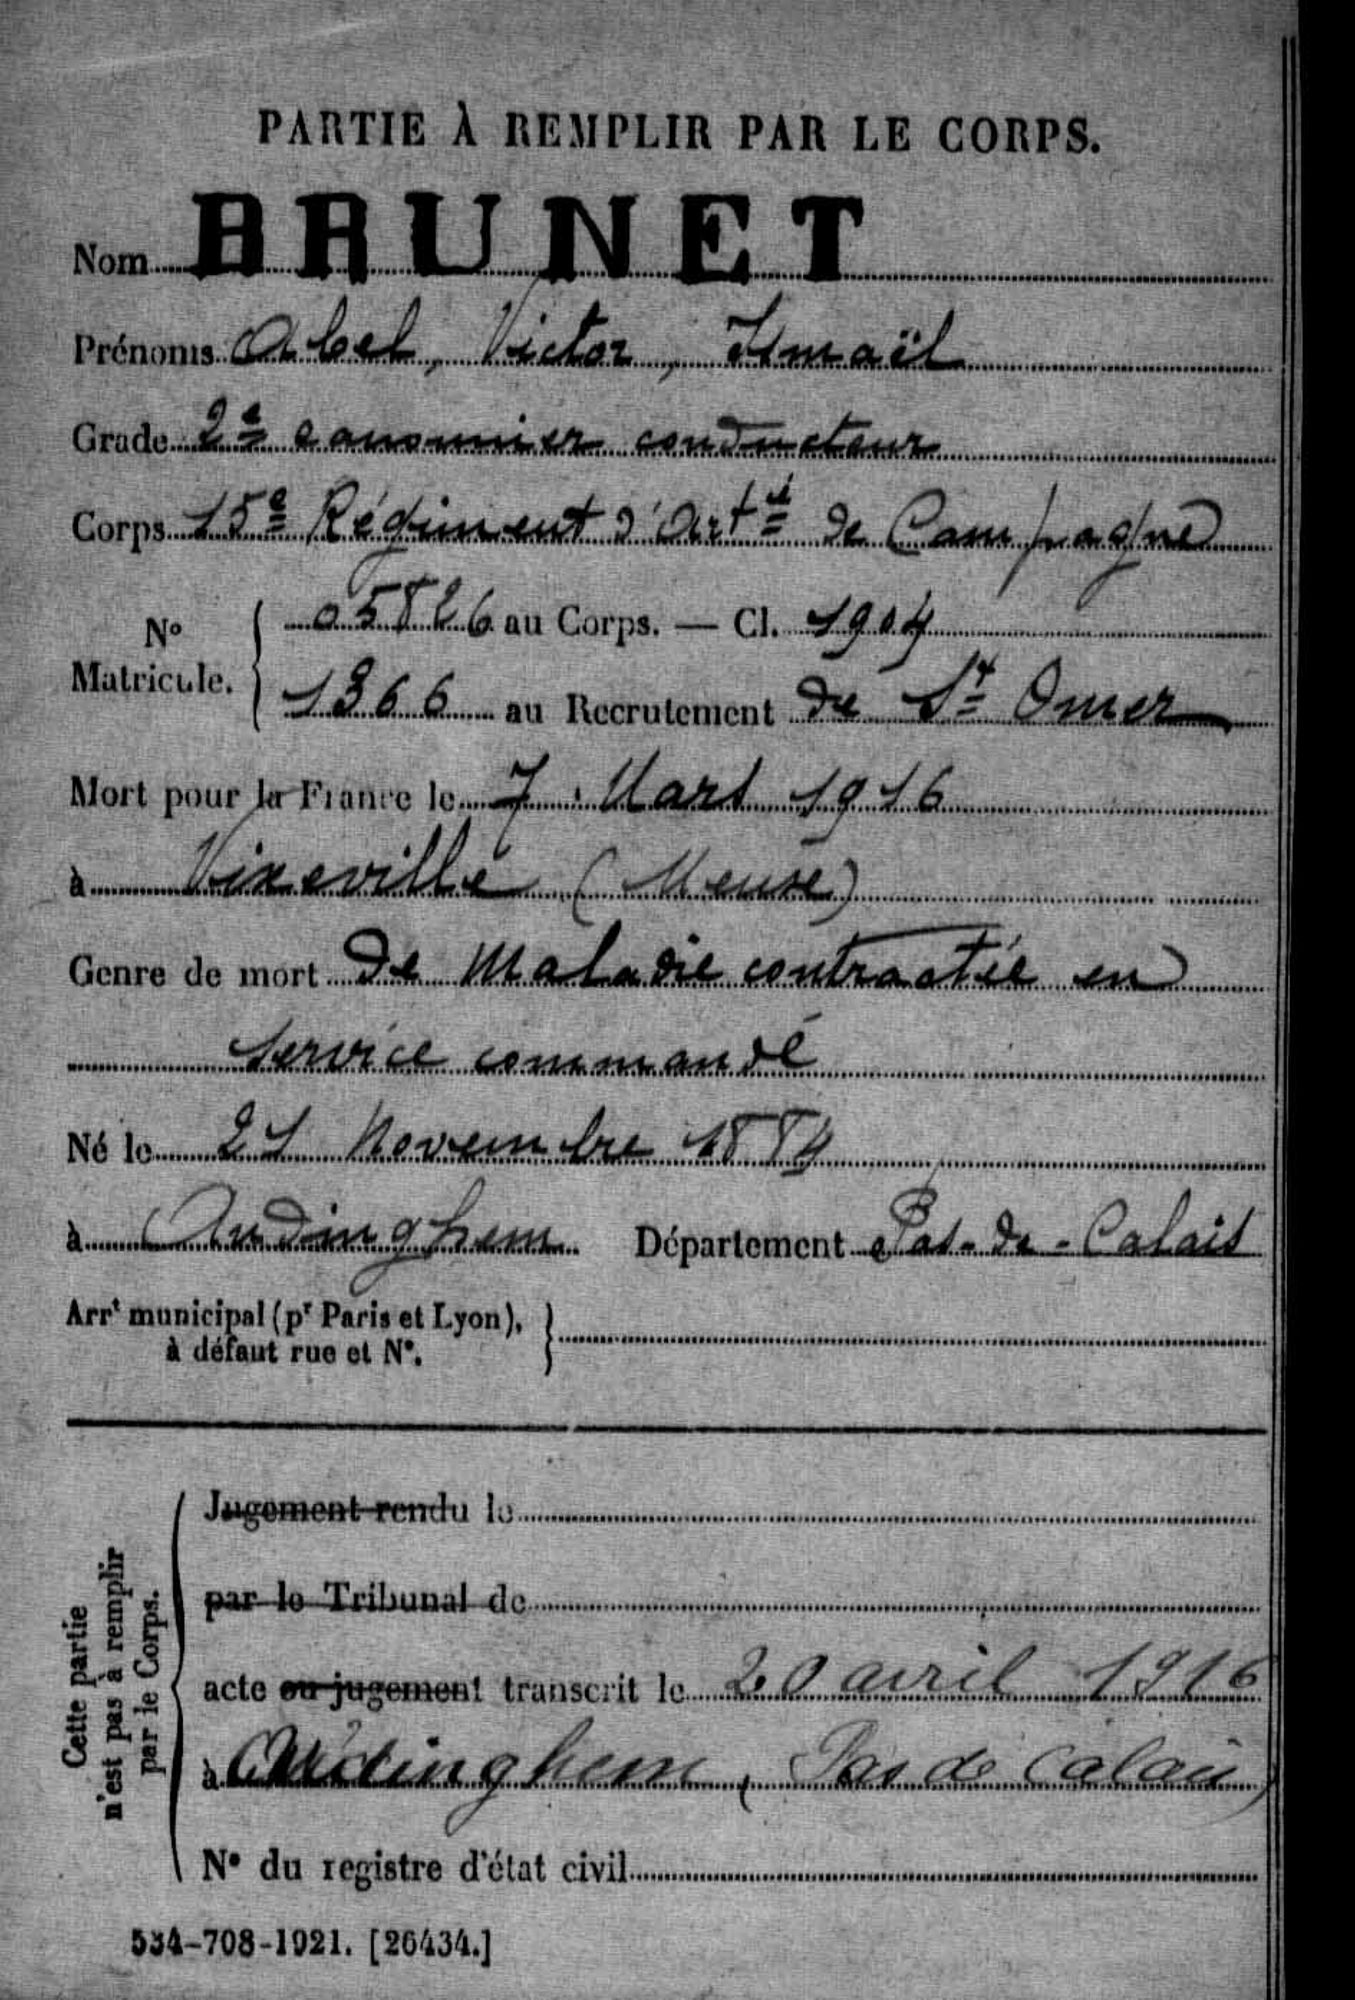 PARTIE À REMPLIR PAR LE CORPS.
Nom BRUNET
Prénoms Abel, Victor, Ismaël
Grade 2e canonnier conducteur
Corps 15e Régiment d'Artie de Campagne
No Matricule. { 05826 au Corps. — Cl. 1904
1366 au Recrutement de St Omer
Mort pour la France le 7 Mars 1916
à Vixeville (Meuse)
Genre de mort De Maladie contractée en
service commandé
Né le 21 Novembre 1884
à Audinghem Département Pas-de-Calais
Arrt municipal (pr Paris et Lyon), à défaut rue et N°. }
Cette partie n'est pas à remplir par le Corps.
Jugement rendu le
par le Tribunal de
acte ou jugement transcrit le 20 avril 1916
à Audinghem (Pas de Calais)
N° du registre d'état civil
534-708-1921. [26434.]